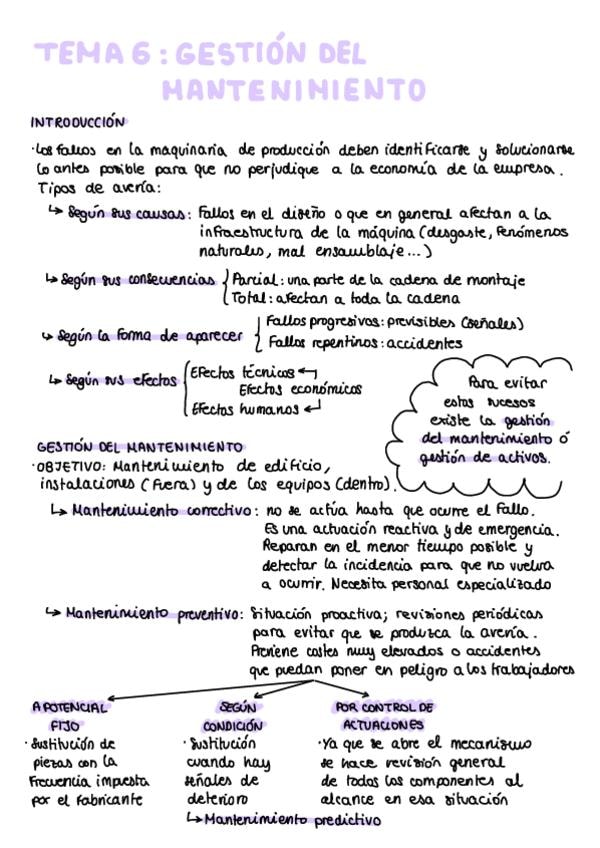 TEMA 6: GESTIÓN DEL
MANTENIMIENTO
INTRODUCCIÓN
·Los fallos en la maquinaria de producción deben identificarse y solucionarse
lo antes posible para que no perjudique a la economía de la empresa.
Tipos de avería:
↳ Según sus causas: Fallos en el diseño o que en general afectan a la
infraestructura de la máquina (desgaste, fenómenos
naturales, mal ensamblaje...)
↳ Según sus consecuencias { Parcial: una parte de la cadena de montaje
Total: afectan a toda la cadena
↳ Según la forma de aparecer { Fallos progresivos: previsibles (señales)
Fallos repentinos: accidentes
↳ Según sus efectos { Efectos técnicos ←
Efectos económicos
Efectos humanos ↵
Para evitar
estos sucesos
existe la gestión
del mantenimiento ó
gestión de activos.
GESTIÓN DEL MANTENIMIENTO
·OBJETIVO: Mantenimiento de edificio,
instalaciones (fuera) y de los equipos (dentro).
↳ Mantenimiento correctivo: no se actúa hasta que ocurre el fallo.
Es una actuación reactiva y de emergencia.
Reparan en el menor tiempo posible y
detectar la incidencia para que no vuelva
a ocurrir. Necesita personal especializado
↳ Mantenimiento preventivo: Situación proactiva; revisiones periódicas
para evitar que se produzca la avería.
Previene costes muy elevados o accidentes
que puedan poner en peligro a los trabajadores
A POTENCIAL
FIJO
· Sustitución de
piezas con la
frecuencia impuesta
por el fabricante
SEGÚN
CONDICIÓN
· Sustitución
cuando hay
señales de
deterioro
↳ Mantenimiento predictivo
POR CONTROL DE
ACTUACIONES
·Ya que se abre el mecanismo
se hace revisión general
de todos los componentes al
alcance en esa situación